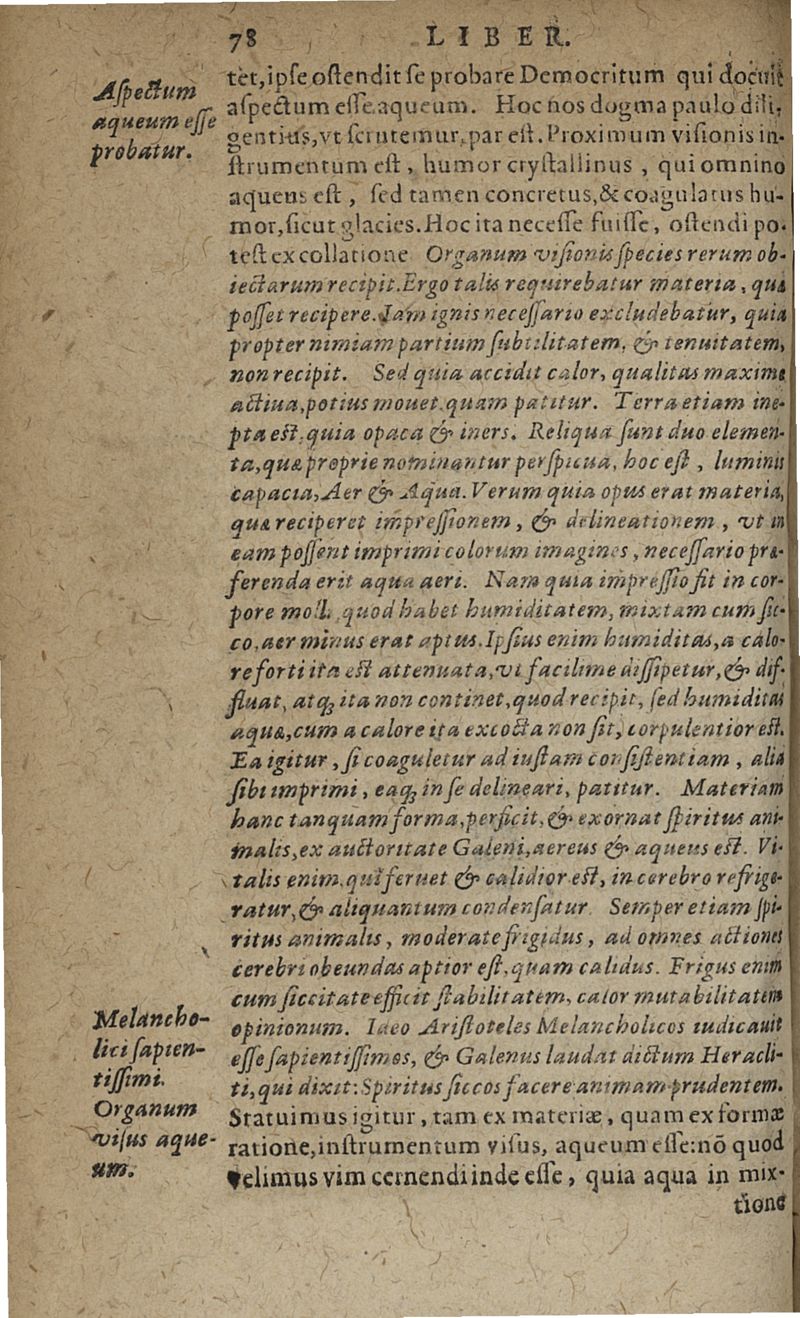 78 LIBER.
Aſpectum
aqueum eſſe
probatur.
tet, ipſe oſtendit ſe probare Democritum qui docuit
aſpectum eſſe aqueum. Hoc nos dogma paulo dili-
gentius, vt ſcrutemur, par eſt. Proximum viſionis in-
ſtrumentum eſt, humor cryſtallinus, qui omnino
aqueus eſt, ſed tamen concretus, & coagulatus hu-
mor, ſicut glacies. Hoc ita neceſſe fuiſſe, oſtendi po-
teſt ex collatione Organum viſionis ſpecies rerum ob-
iectarum recipit. Ergo talis requirebatur materia, quæ
poſſet recipere. Iam ignis neceſſario excludebatur, quia
propter nimiam partium ſubtilitatem, & tenuitatem,
non recipit. Sed quia accidit calor, qualitas maxime
actiua, potius mouet, quam patitur. Terra etiam ine-
pta eſt, quia opaca & iners. Reliqua ſunt duo elemen-
ta, quæ proprie nominantur perſpicua, hoc eſt, luminis
capacia, Aer & Aqua. Verum quia opus erat materia,
quæ reciperet impreſſionem, & delineationem, vt in
eam poſſent imprimi colorum imagines, neceſſario præ-
ferenda erit aqua aeri. Nam quia impreſſio fit in cor-
pore molli, quod habet humiditatem, mixtam cum ſic-
co, aer minus erat aptus. Ipſius enim humiditas, a calo-
re forti ita eſt attenuata, vt facilime diſſipetur, & dif-
fluat, atq; ita non continet, quod recipit, ſed humiditas
aquæ, cum a calore ita excocta non ſit, corpulentior eſt.
Ea igitur, ſi coaguletur ad iuſtam conſiſtentiam, alia
ſibi imprimi, eaq; in ſe delineari, patitur. Materiam
hanc tanquam forma, perficit, & exornat ſpiritus ani-
malis, ex auctoritate Galeni, aereus & aqueus eſt. Vi-
talis enim, qui feruet & calidior eſt, in cerebro refrige-
ratur, & aliquantum condenſatur. Semper etiam ſpi-
ritus animalis, moderate frigidus, ad omnes actiones
cerebri obeundas aptior eſt, quam calidus. Frigus enim
cum ſiccitate efficit ſtabilitatem, calor mutabilitatem
opinionum. Ideo Ariſtoteles Melancholicos iudicauit
eſſe ſapientiſſimos, & Galenus laudat dictum Heracli-
ti, qui dixit: Spiritus ſiccos facere animam prudentem.
Statuimus igitur, tam ex materiæ, quam ex formæ
ratione, inſtrumentum viſus, aqueum eſſe: nõ quod
velimus vim cernendi inde eſſe, quia aqua in mix-
tione
Melancho-
lici ſapien-
tiſſimi.
Organum
viſus aque-
um.